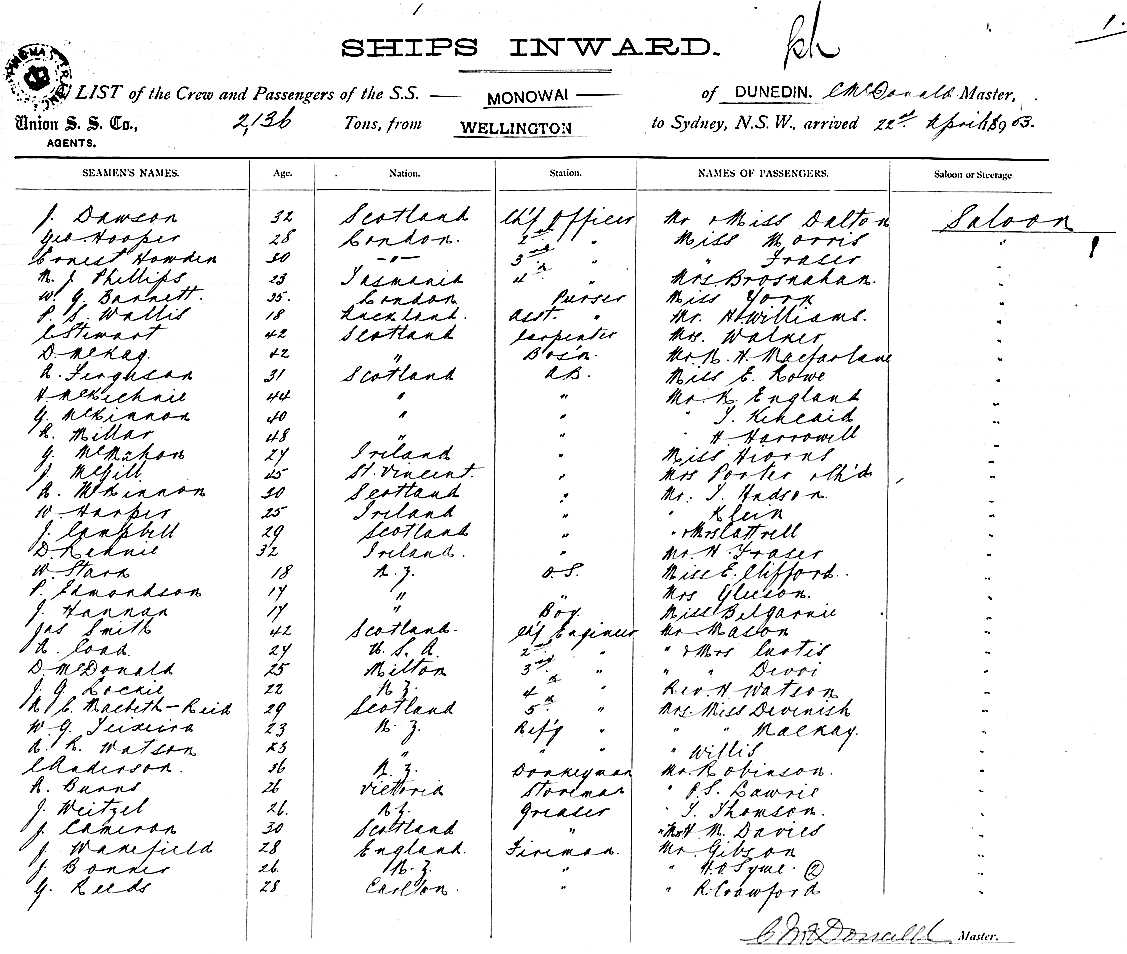 1
1.
SHIPS INWARD.
LIST of the Crew and Passengers of the S.S. — MONOWAI — of DUNEDIN. C McDonald Master,
Union S. S. Co., 2,136 Tons, from WELLINGTON to Sydney, N.S.W., arrived 22nd April 1903.
AGENTS.
SEAMEN'S NAMES. Age. Nation. Station. NAMES OF PASSENGERS. Saloon or Steerage
J. Dawson 32 Scotland Ch'f Officer Mr & Miss Dalton Saloon
Geo Hooper 28 London. 2nd " Miss Morris "
Ernest Howden 30 —"— 3rd " " Fraser "
N. J. Phillips 23 Tasmania 4th " Mrs Brosnahan. "
W. G. Barnett. 35. London Purser Miss York "
P. S. Wallis 18 Auckland. Asst " Mr. H Williams. "
C Stewart 42 Scotland Carpenter Mrs. Walker "
D. McKay. 42 " Bos'n. Mr R. H. Macfarlane "
R. Ferguson 31 Scotland A.B. Miss E. Rowe "
H McKichnie 44 " " Mr. K England "
G. McKinnon 40 " " " T. Kincaid "
R. Millar 48 " " " H. Harrowell "
G. McMahon 27 Ireland " Miss Hiorns "
J. McGill 45 St. Vincent. " Mrs Porter & Ch'd "
A. McKinnon 30 Scotland " Mr. T. Hudson. "
W Harper 25 Ireland " " Klein "
J. Campbell 29 Scotland " " & Mrs Cattrell "
D. Rennie 32 Ireland. " Mr. H. Fraser "
W. Stark 18 N. Z. O.S. Miss E. Clifford. "
P. Edmondson 17 " " Mrs Gleeson. "
J. Hannan 17 " Boy. Miss Belgarnie "
Jas Smith 42 Scotland. Ch'f Engineer Mr Mason "
A. Coad. 27 U. S. A. 2nd " " & Mrs Curtis "
D. McDonald 25 Milton 3rd " " " "
J. G. Lockie 22 N. Z. 4th " Rev. H Watson "
N C. Macbeth-Reid 29 Scotland 5th " Mrs. Miss Devenish "
W G Teixeira 23 N. Z. Ref'g " " " Mackay. "
A. R. Watson 23 " " " " Willis "
C Anderson. 36 N. Z. Donkeyman Mr. Robinson. "
R. Burns 26 Victoria Storeman " P. S. Lawrie "
J. Weitzel 26. N. Z. Greaser " T. Thomson. "
J. Cameron 30 Scotland " " M. Davies "
J. Wakefield 28 England. Fireman. Mr. Gibson "
J. Bonner 26. N. Z. " " Syme. (2) "
G. Reeds 28 Carlton. " " R. Crawford "
C McDonald Master.